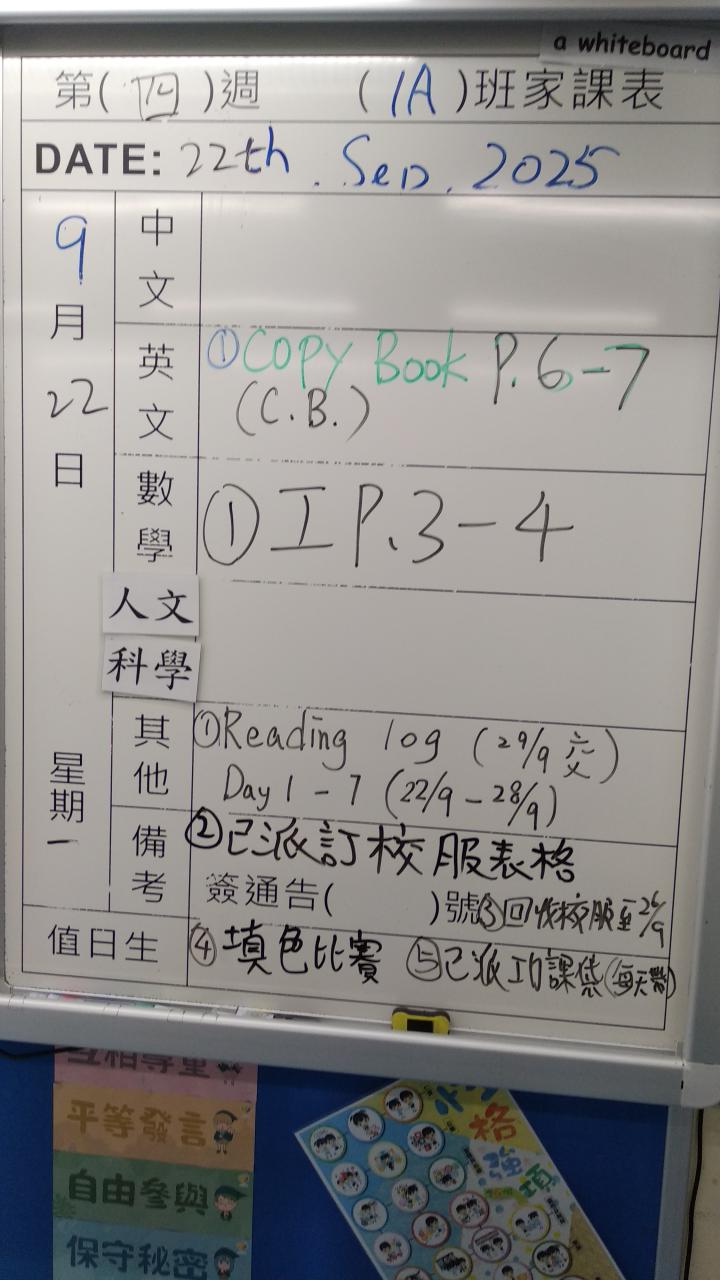 a whiteboard
第(四)週 (1A)班家課表
DATE: 22th. Sep. 2025
9月22日
星期一
中文
英文
①Copy Book P.6-7
(C.B.)
數學
①工P.3-4
人文
科學
其他
①Reading log (29/9 交)
Day 1-7 (22/9-28/9)
備考
②已派訂校服表格
簽通告( )號
③回收校服至26/9
值日生
④填色比賽 ⑤已派功課袋(每天帶)
互相尊重
平等發言
自由參與
保守秘密
格
強項